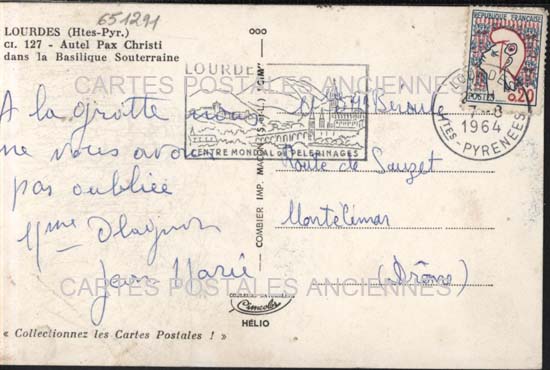 651291
LOURDES (Htes-Pyr.)
CI. 127 - Autel Pax Christi
dans la Basilique Souterraine
A la grotte nous
ne vous avons
pas oubliée
Mme
Jean Marie
« Collectionnez les Cartes Postales ! »
COMBIER IMP. MACON (S.-&-L.) "CIM"
Cimcolor
HÉLIO
LOURDES
CENTRE MONDIAL DE PÈLERINAGES
RÉPUBLIQUE FRANÇAISE
POSTES 0,20
LOURDES
7-8
1964
HTES-PYRENEES
Route de Sauzet
Montélimar
(Drôme)
CARTES POSTALES ANCIENNES
CARTES POSTALES ANCIENNES